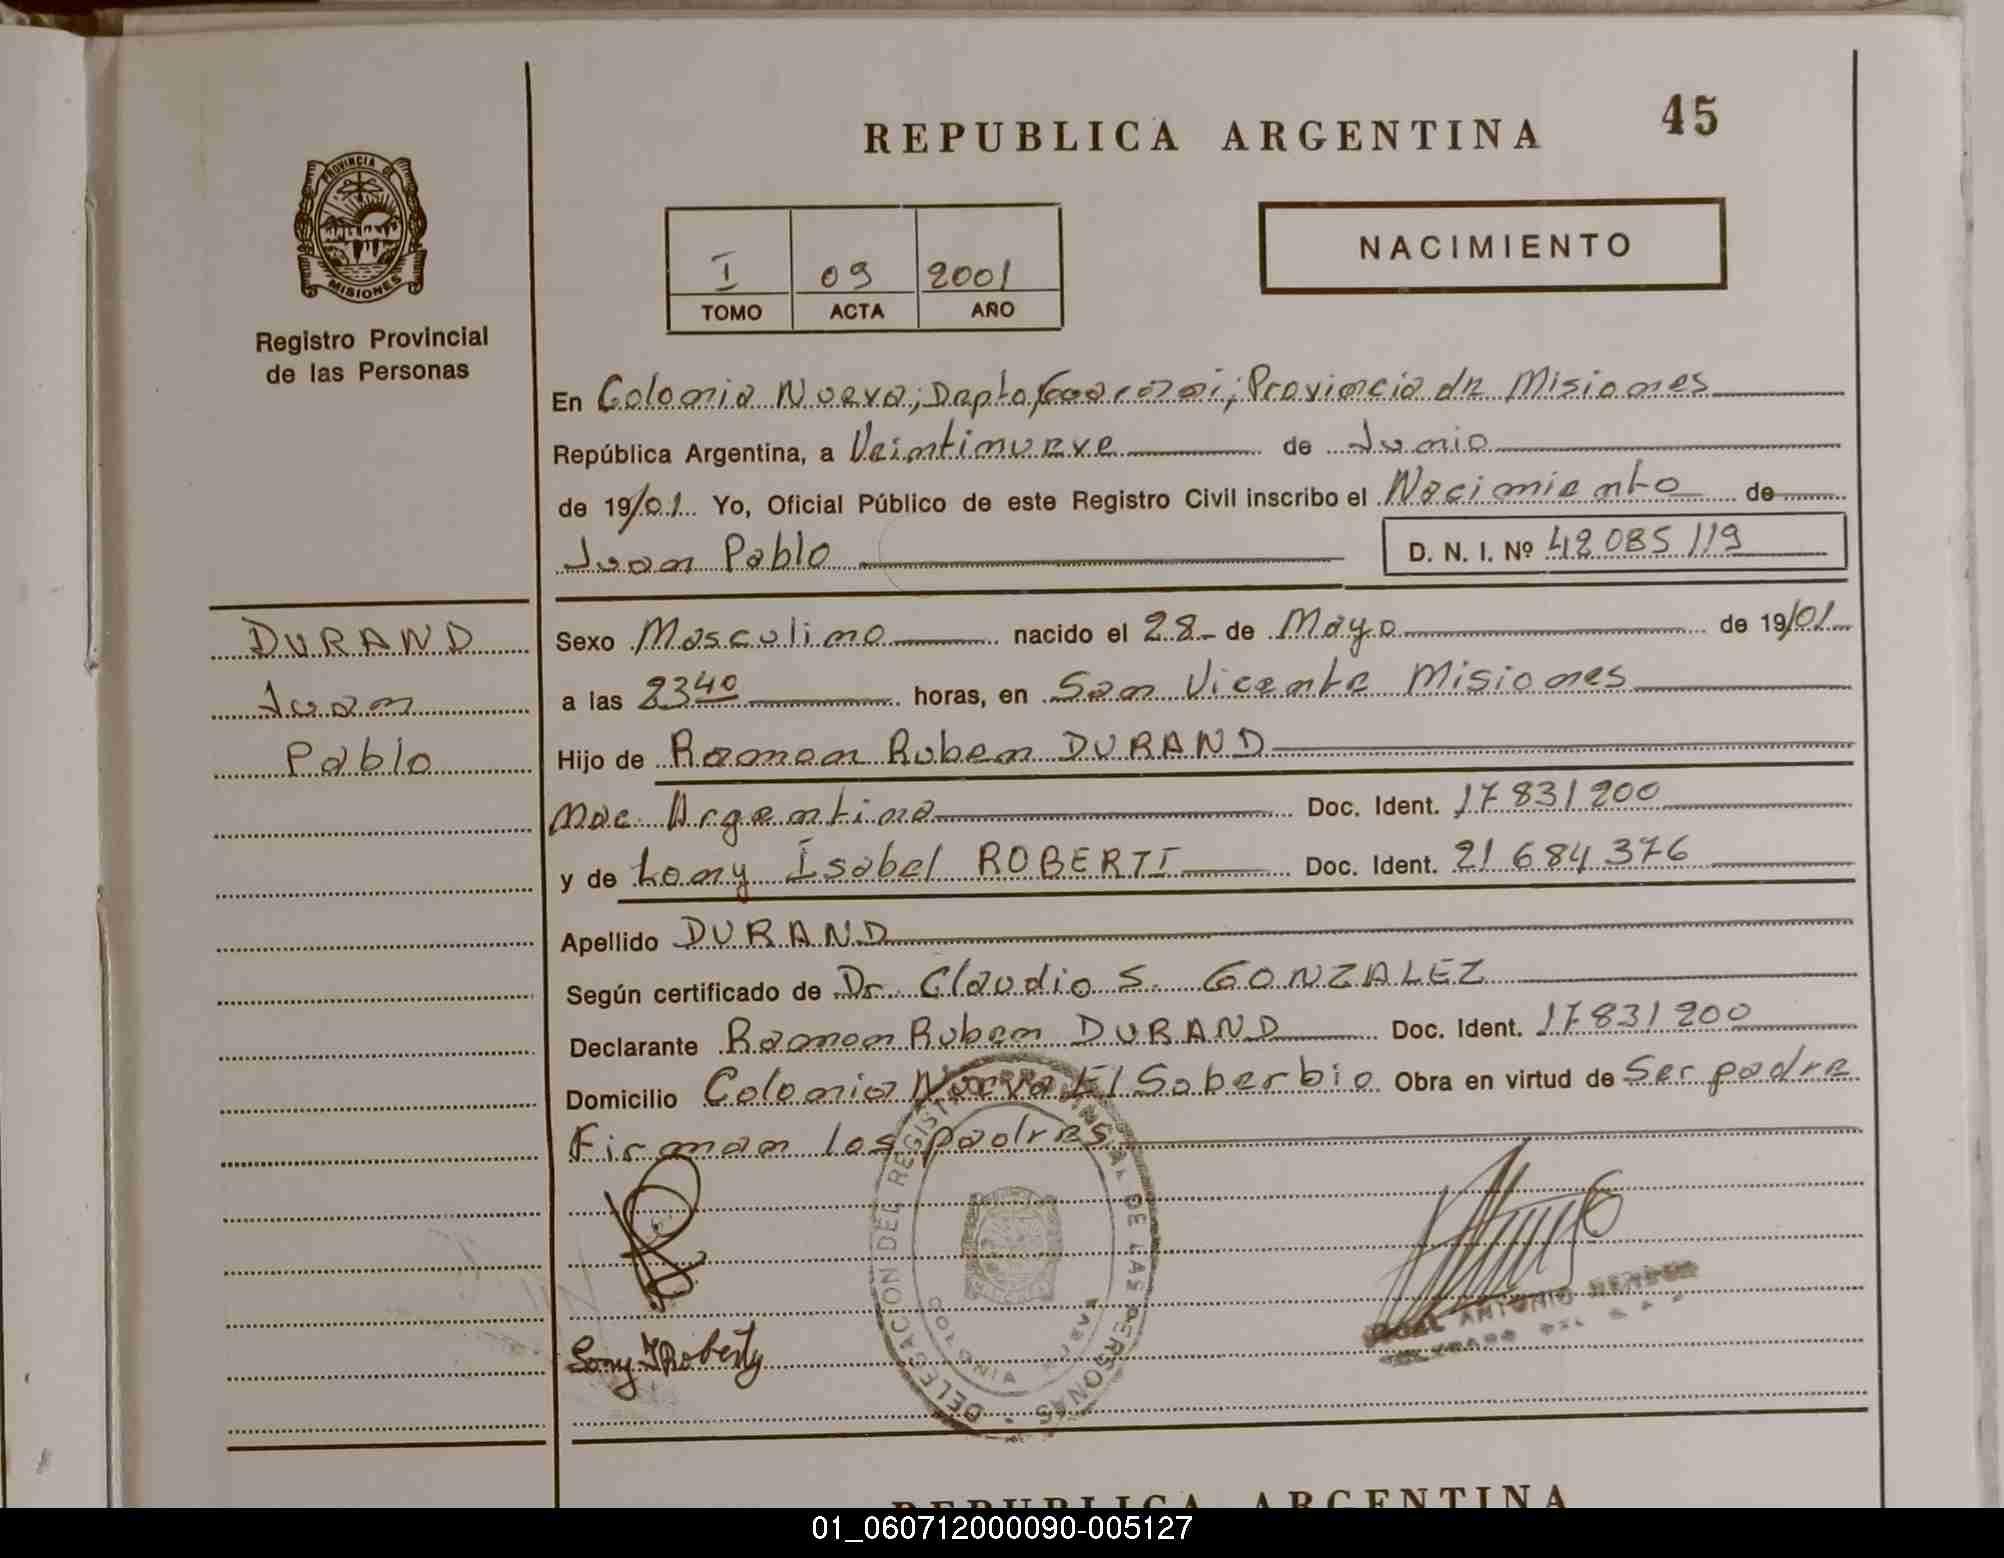 REPUBLICA ARGENTINA
45
PROVINCIA DE
MISIONES
Registro Provincial
de las Personas
I 09 2001
TOMO ACTA AÑO
NACIMIENTO
En Colonia Nueva; Depto Guaraní; Provincia de Misiones
República Argentina, a Veintinueve de Junio
de 19/01 Yo, Oficial Público de este Registro Civil inscribo el Nacimiento de
Juan Pablo D. N. I. Nº 42085119
DURAND
Juan
Pablo
Sexo Masculino nacido el 28 de Mayo de 19/01
a las 23 40 horas, en San Vicente Misiones
Hijo de Ramon Ruben DURAND
Nac. Argentina Doc. Ident. 17831200
y de Lony Isabel ROBERTI Doc. Ident. 21684376
Apellido DURAND
Según certificado de Dr. Claudio S. GONZALEZ
Declarante Ramon Ruben DURAND Doc. Ident. 17831200
Domicilio Colonia Nueva El Soberbio Obra en virtud de Ser padre
Firman los padres
DELEGACION DEL REGISTRO PROVINCIAL DE LAS PERSONAS
ANTONIO
REPUBLICA ARGENTINA
01_060712000090-005127